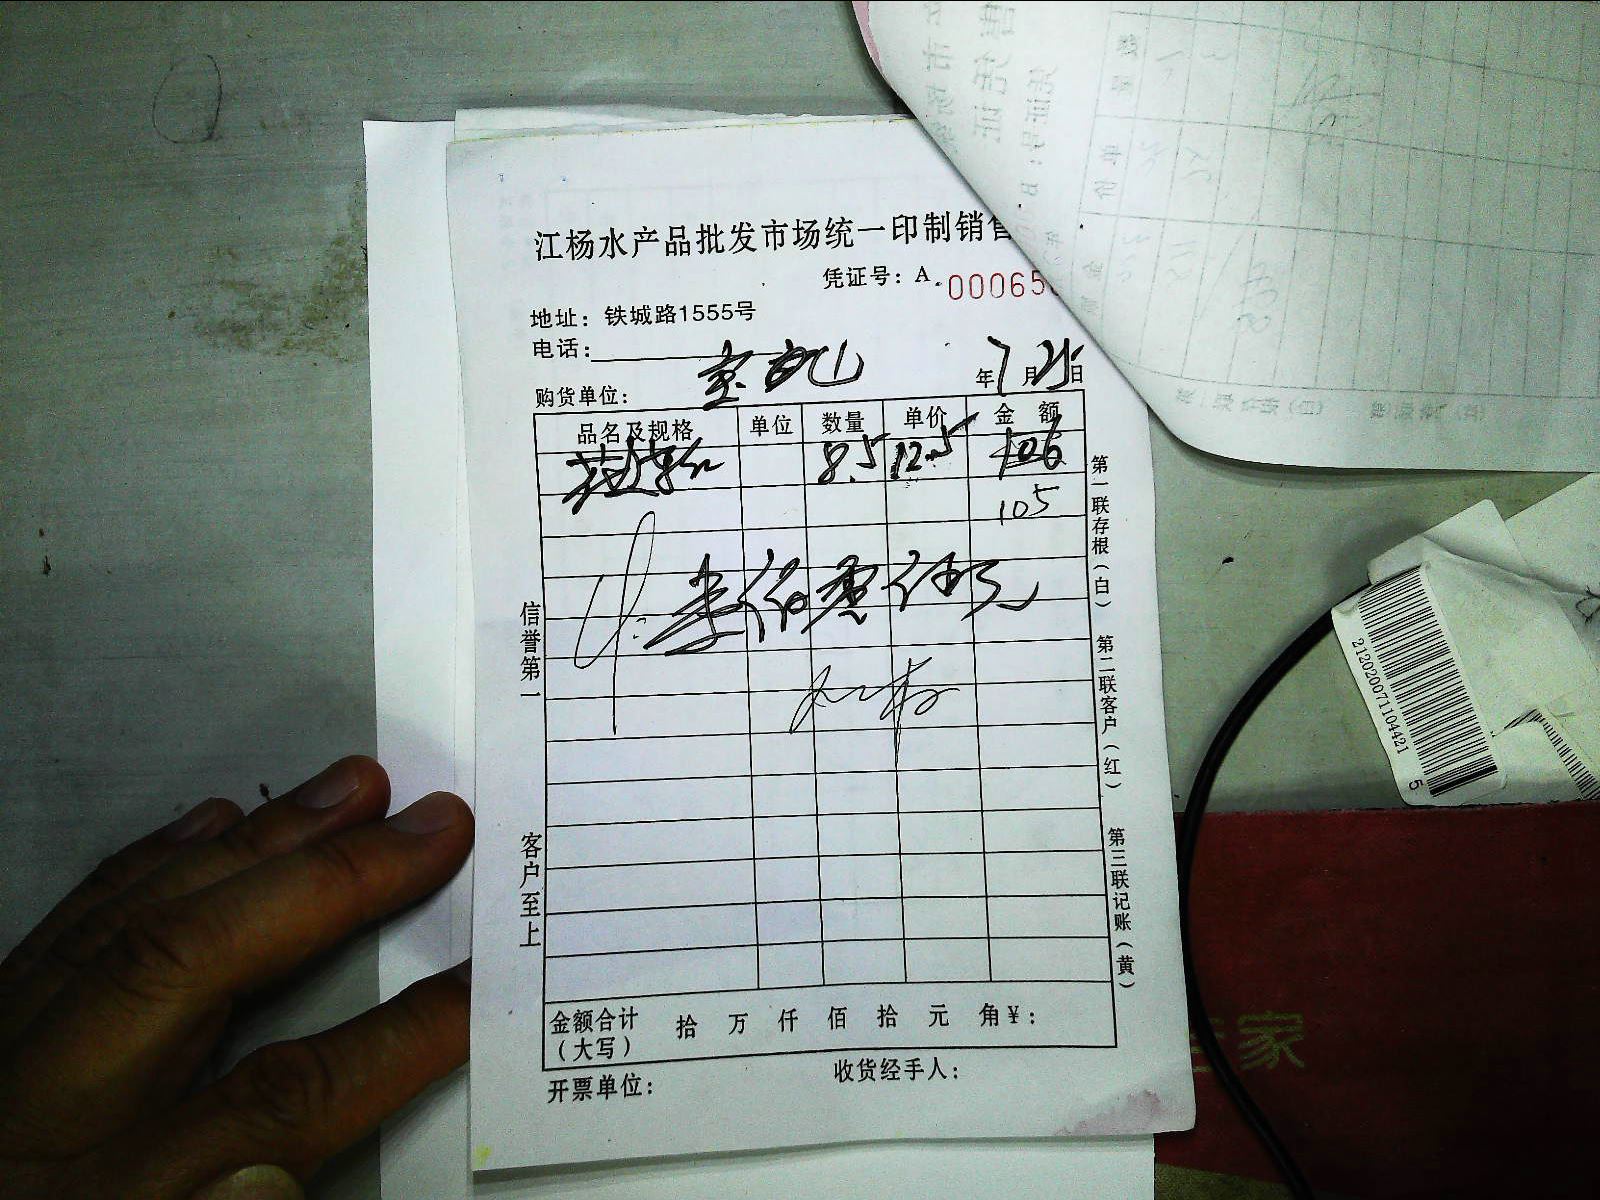 江杨水产品批发市场统一印制销售
凭证号：A.00065
地址：铁城路1555号
电话：
购货单位：
年7月25日
品名及规格 单位 数量 单价 金额
8.5 12.5 106
105
壹佰零伍元
信誉第一
客户至上
第一联存根（白）
第二联客户（红）
第三联记账（黄）
金额合计（大写） 拾 万 仟 佰 拾 元 角 ¥：
开票单位：
收货经手人：
2120200711044215
家